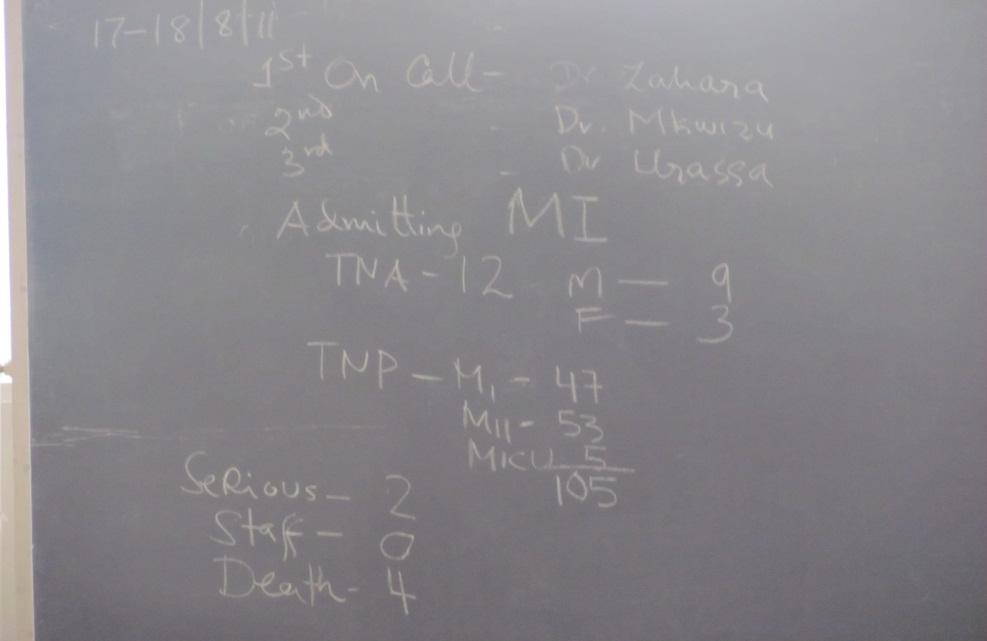 17-18/8/11
1st On Call- Dr Zahara
2nd Dr. Mkwizu
3rd - Dr Urassa
Admitting MI
TNA - 12 M — 9
F — 3
TNP - MI - 47
MII - 53
MICU 5
105
Serious - 2
Staff - 0
Death - 4